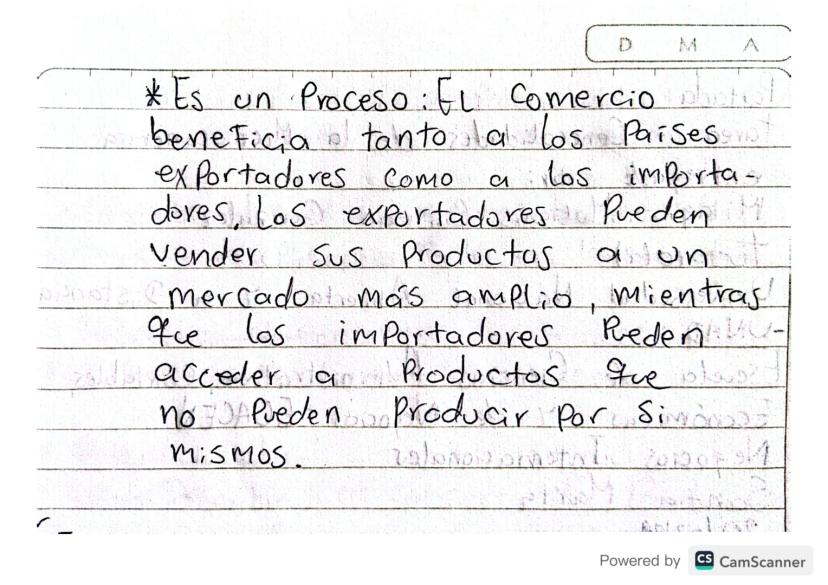 D M A
*Es un Proceso: El Comercio
beneficia tanto a los Países
exportadores como a los importa-
dores, los exportadores Pueden
vender sus Productos a un
mercado más amplio, mientras
que los importadores Pueden
acceder a Productos que
no Pueden Producir por si
mismos.
Powered by CS CamScanner